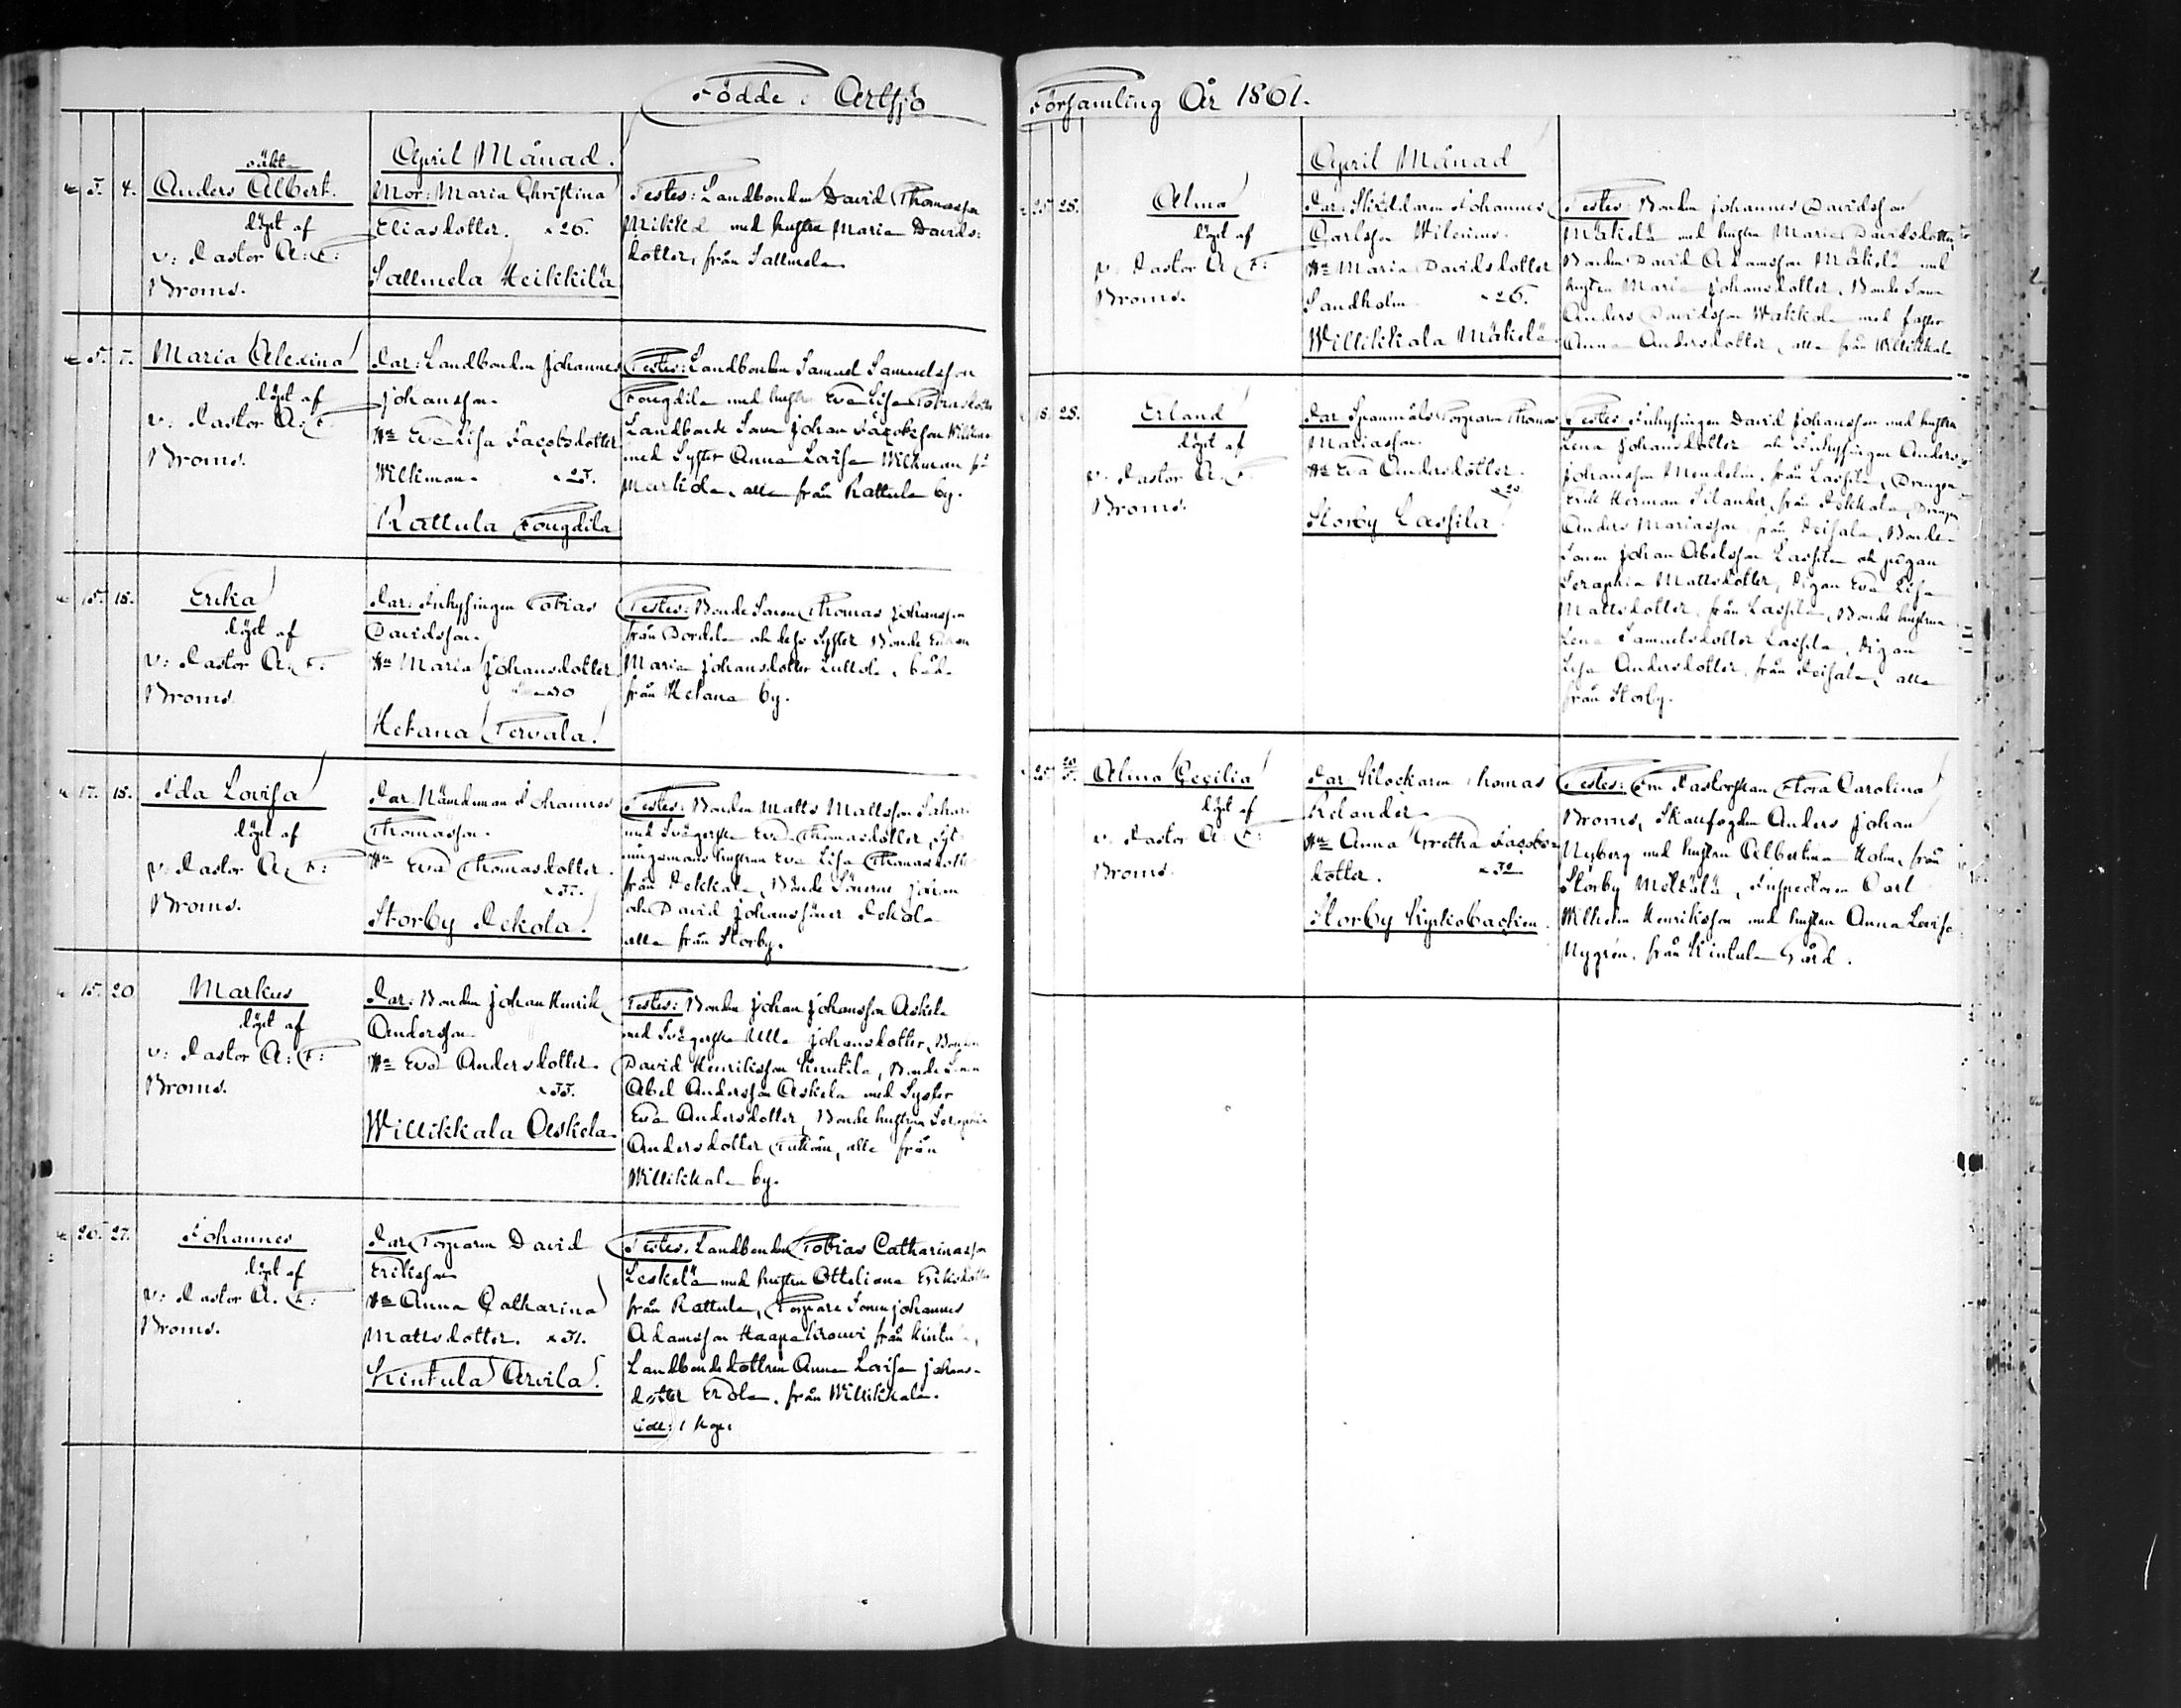 Födde i Artsjö
April Månad.
5. 4. oäkta
Anders Albert.
döpt af
v: Pastor A: F:
Broms.
Mor: Maria Christina
Eliasdotter. 26.
Sallmela Heikkilä
Testes: Landbonden David Thomasson
Mikkola med hustru Maria Davids-
dotter, från Sallmela
5. 7. Maria Alexina
döpt af
v: Pastor A: F:
Broms.
Par: Landbonden Johannes
Johansson.
Hu Eva Lisa Jacobsdotter
Wilkman. 25.
Rattula Fougdila
Testes: Landbonden Samuel Samuelsson
Fougdila med hustru Eva Lisa Tobiasdotter
Landbonde Sonen Johan Jacobsson Wilkman
med Syster Anna Lovisa Wilkman från
Markola, alla från Rattula by.
15. 18. Erika
döpt af
v: Pastor A. F:
Broms.
Par: Inhysingen Tobias
Davidsson.
Hu Maria Johansdotter
30
Hetana Tervala.
Testes: Bonde Sonen Thomas Johansson
från Bordola och dess Syster Bonde Enkan
Maria Johansdotter, båda
från Hetana by.
17. 18. Ida Lovisa
döpt af
v. Pastor A. F:
Broms.
Par: Nämdeman Johannes
Thomasson.
Hu Eva Thomasdotter.
Storby Pekola.
Testes: Bonden Matts Mattsson
med Svägerskan Eva Thomasdotter,
hustrun Eva Lisa Thomasdotter
från Pekkala, Bonde Sönerne Johan
och David Johanssöner Pekola
alla från Storby.
15. 20 Markus
döpt af
v: Pastor A: F:
Broms.
Par: Bonden Johan Henrik
Andersson
Hu Eva Andersdotter.
35.
Willikkala Askela.
Testes: Bonden Johan Johansson Askela
med Svägerskan Ulla Johansdotter, Bonden
David Henriksson Knutila, Bonde Sonen
Abel Andersson Askela med Syster
Eva Andersdotter, Bonde hustrun Seraphia
Andersdotter, alla från
Willikkala by.
26. 27. Johannes
döpt af
v: Pastor A. F:
Broms.
Par: Torparen David
Eriksson
Hu Anna Catharina
Mattsdotter. 31.
Kintula Arvila.
Testes. Landbonden Tobias Catharinasson
Leskelä med hustru Otteliana Eriksdotter
från Rattula, Torpare Sonen Johannes
Adamsson Haapakrouvi från Kintula,
Landbondedottren Anna Lovisa Johans-
dotter Erola, från Willikkala.
Församling År 1861.
April Månad
25. 28. Alma
döpt af
v. Pastor A. F:
Broms.
Par: Skräddaren Johannes
Carlsson Wilenius.
Hu Maria Davidsdotter
Sandholm 26.
Willikkala Mäkelä
Testes: Bonden Johannes Davidsson
Mäkelä med hustru Maria Davidsdotter,
Bonden David Adamsson Mäkelä med
hustru Maria Johansdotter, Bonde Sonen
Anders Davidsson Wakkola med faster
Anna Andersdotter, alla från Willikkala
18. 28. Erland
döpt af
v. Pastor A. F.
Broms.
Par: Spannmåls Torparen Thomas
Mariasson.
Hu Eva Andersdotter.
Storby Lassila
Testes: Inhysingen David Johansson med hustru
Lena Johansdotter och Inhysingen Anders
Johansson Mendelin, från Lassila, Drengen
Erik Herman Silander, från Pekkala, Drengen
Anders Mariasson från, Bonde
Sonen Johan Abelsson Lassila och pigan
Seraphia Mattsdotter, Pigan Eva Lisa
Mattsdotter, från Lassila, Bonde hustrun
Lena Samuelsdotter Lassila, Pigan
Lisa Andersdotter, från, alla
från Storby.
25. Alma Cecilia
döpt af
v. Pastor A. F:
Broms.
Par: Klockaren Thomas
Relander
Hu Anna Gretha Jacobs-
dotter.
Storby Kyrkobacken.
Testes: Fru Pastorskan Flora Carolina
Broms, Skallfogden Anders Johan
Nyberg med hustru Albertina Holm, från
Storby, Inspectoren Carl
Wilhelm Henriksson med hustru Anna Lovisa
Nygrén, från Kintula Gård.